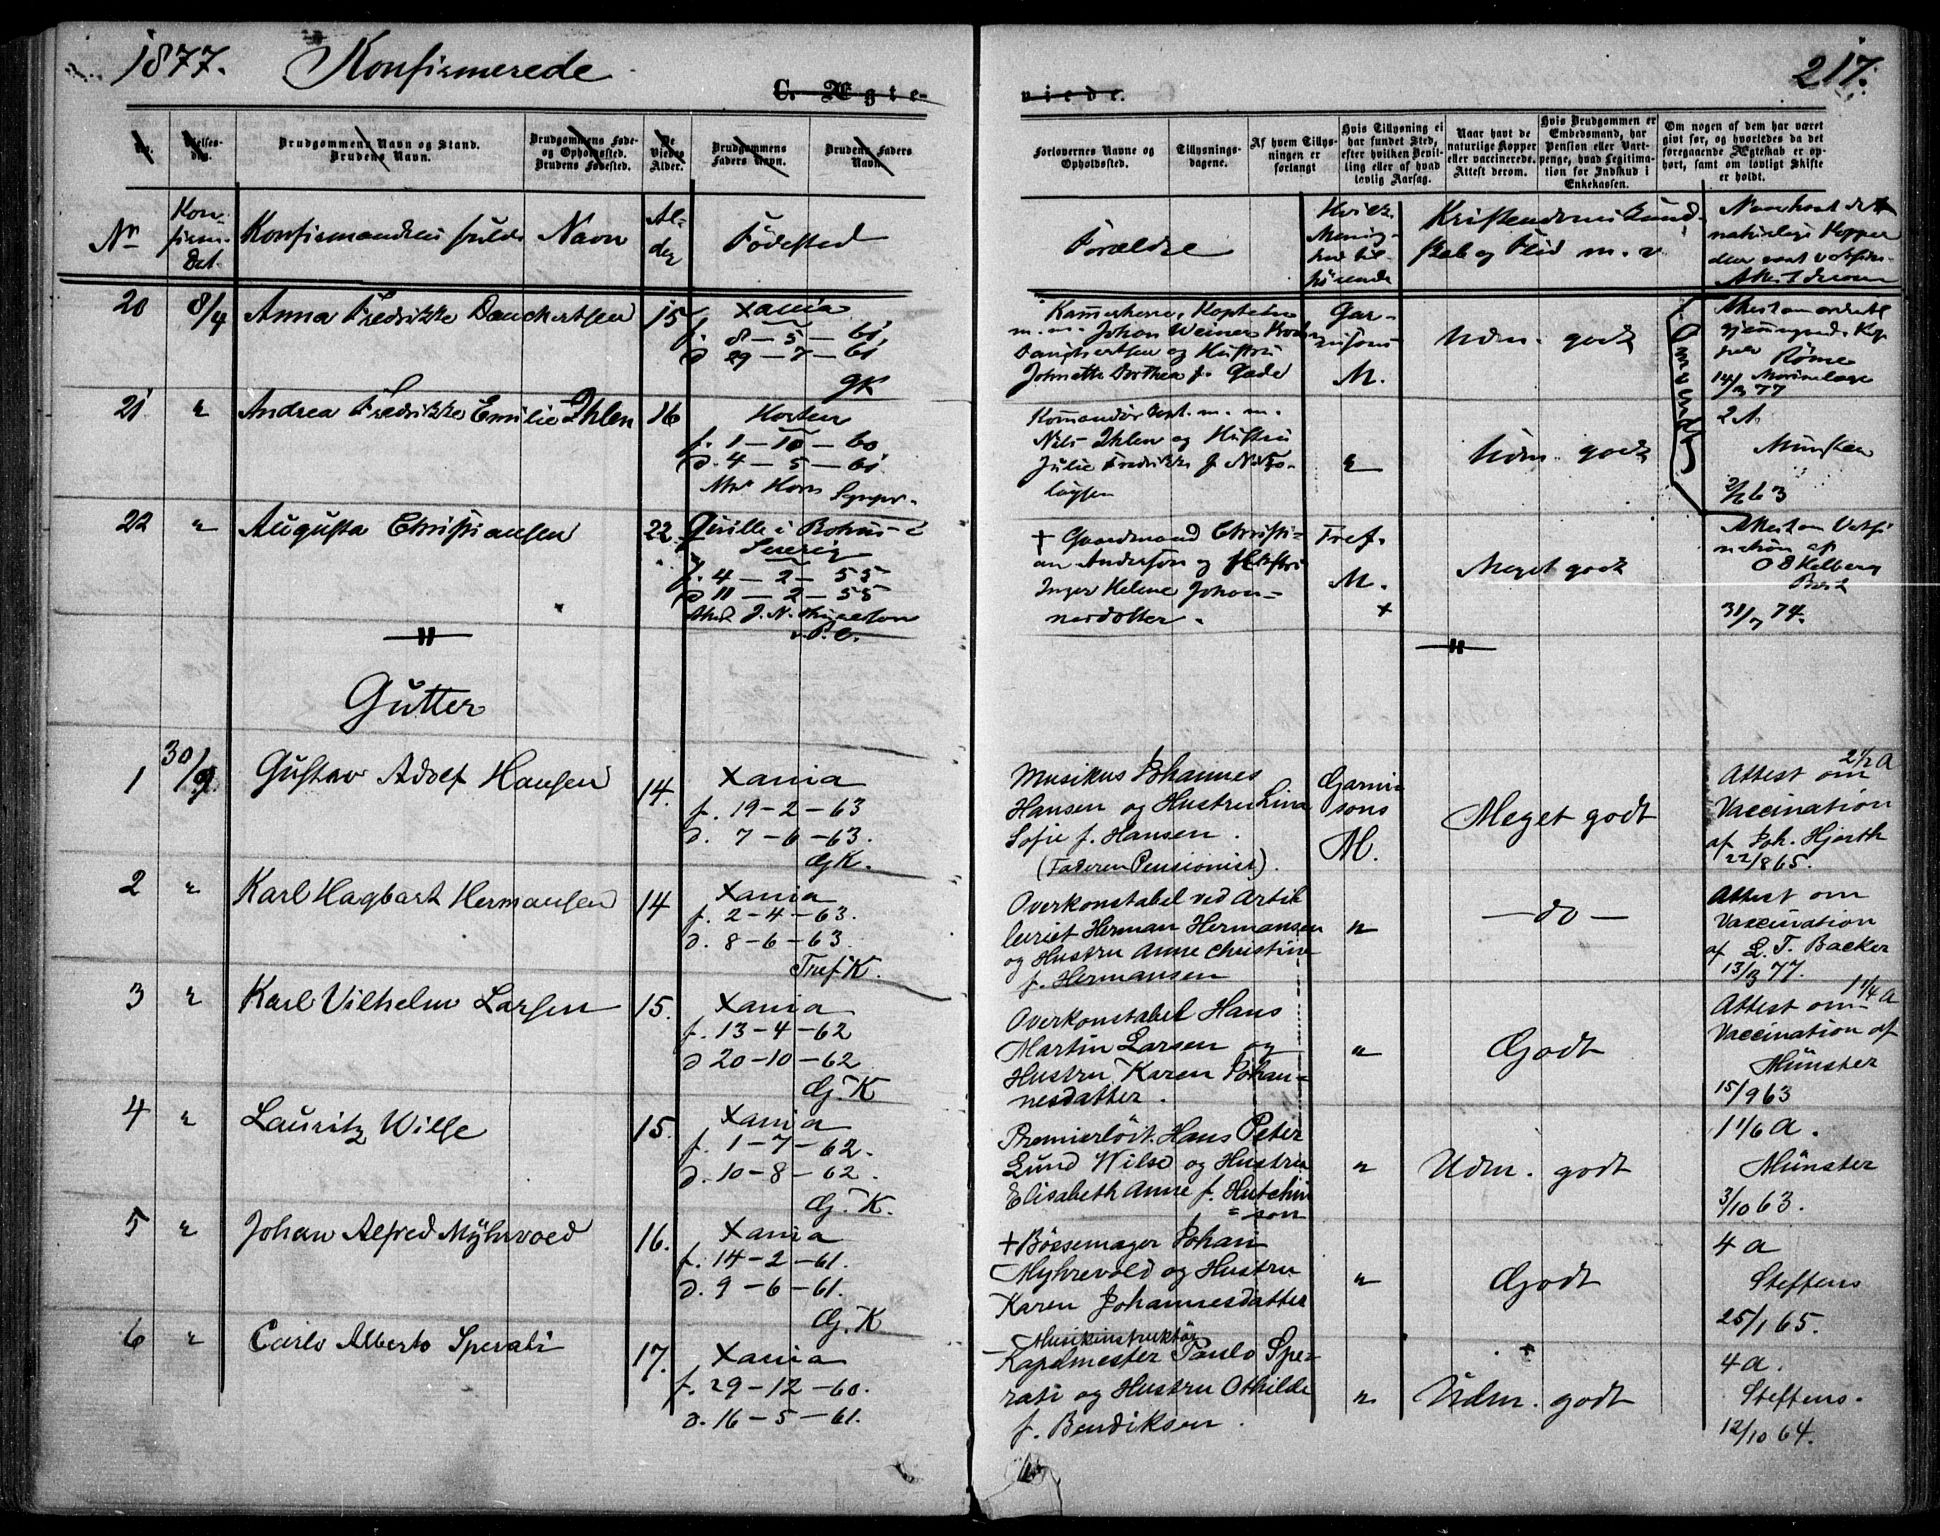 1877. Konfirmerede
217.
C. Ægte- viede.
No.
Vielses-
dag.
Brudgommens Navn og Stand.
Brudens Navn.
Brudgommens Føde-
og Opholdssted.
Brudens Fødested.
De
Viedes
Alder.
Brudgommens
Faders Navn.
Brudens Faders
Navn.
Forlovernes Navne og
Opholdssted.
Tillysnings-
dagene.
Af hvem Tillys-
ningen er
forlangt
Hvis Tillysning ei
har fundet Sted,
efter hvilken Bevil-
ling eller af hvad
lovlig Aarsag.
Naar havt de
naturlige Kopper
eller vaccinerede.
Attest derom.
Hvis Brudgommen er
Embedsmand, har
Pension eller Vart-
penge, hvad Legitima-
tion for Indskud i
Enkekassen.
Om nogen af dem har været
givt før, og hvorledes da det
foregaaende Ægteskab er op-
hørt, samt om lovligt Skifte
er holdt.
Nr
Kon-
firm.
Dat.
Konfirmandens fulde Navn
Al-
der
Fødested
Forældre
Hvilk.
Menig-
hed til-
hørende
Kristendoms Kund-
skab og Flid m. v
Naar havt de
naturlige Kopper
eller vaat vakcin.
Attest derom
20
8/4
Anna Fredrikke Danchertsen
15
Xania
f. 8-5-61
d 29-7-61
GK
Kammerherre, Kaptein
m. m. Johan Weiner
Danchertsen og Hustru
Johnette Dorthea f. Gade
Gar-
nisons
M.
Udm. godt
Røme
Marinelæge
14/3 77
21
"
Andrea Fredrikke Emilie Ihlen
16
Horten
f. 1-10-60
d. 4-5-61
Horn Sgnpr.
Komandør m. m.
Nils Ihlen og Hustru
Julie Fredrikke f.
"
Udm. godt
2 A.
Münster
63
22
"
Augusta Christiansen
22
Qville i Bohus-
Sverig
f. 4-2-55
d 11-2-55
+ Gaardmand Christi-
an Anderson og Hustru
Inger Helene Johan-
nesdotter.
Tref.
M.
+
Meget godt
Attest om Vakci
nation af
O B Kelberg
31/7 74.
Gutter
1
30/9
Gustav Adolf Hansen
14.
Xania
f. 19-2-63
d. 7-6-63.
GK.
Musikus Johannes
Hansen og Hustru Lina
Sofie f. Hansen.
(Faderen Pensionist).
Garni
sons
M.
Meget godt
2 1/2 A
Attest om
Vaccination
af Joh. Hjorth
22/8 65.
2
"
Karl Hagbart Hermansen
14
Xania
f. 2-4-63.
d. 8-6-63.
Tref K.
Overkonstabel ved Artil
leriet Herman Hermansen
og Hustru Anne Christine
f. Hermansen
"
-do-
Attest om
Vaccination
af L. T. Backer
13/3 77.
3
"
Karl Vilhelm Larsen
15.
Xania
f. 13-4-62
d 20-10-62
G. K
Overkonstabel Hans
Martin Larsen og
Hustru Karen Johan=
nesdatter.
"
Godt
1 1/4 A
Attest om
Vaccination af
Münster
15/9 63
4
"
Lauritz Wilse
15.
Xania
f. 1-7-62.
d. 10-8-62.
G. K.
Premierlöit. Hans Peter
Lund Wilse og Hustru
Elisabeth Anne f. Hutchin
=son
"
Udm. godt
1 1/6 A.
Münster
3/10 63.
5
"
Johan Alfred Myhrvold
16.
Xania
f. 14-2-61.
d. 9-6-61.
G. K
+ Bössemager Johan
Myhrevold og Hustru
Karen Johannesdatter
"
Godt
4 a
Steffens
25/1 65.
6
"
Carlo Alberto Sperati
17.
Xania
f. 29-12-60.
d. 16-5-61.
Musikinstruktör
Kapelmester Paulo Spe-
rati og Hustru Othilde
f. Bendiksen.
"
Udm. godt
4 a.
Steffens.
12/10 64.